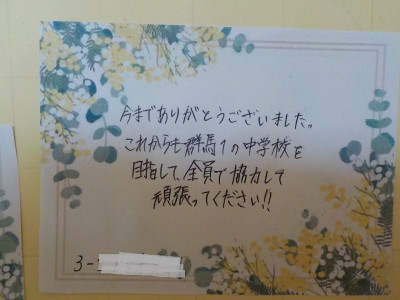 今までありがとうございました。
これからも群馬1の中学校を
目指して、全員で協力して
頑張ってください!!
3-